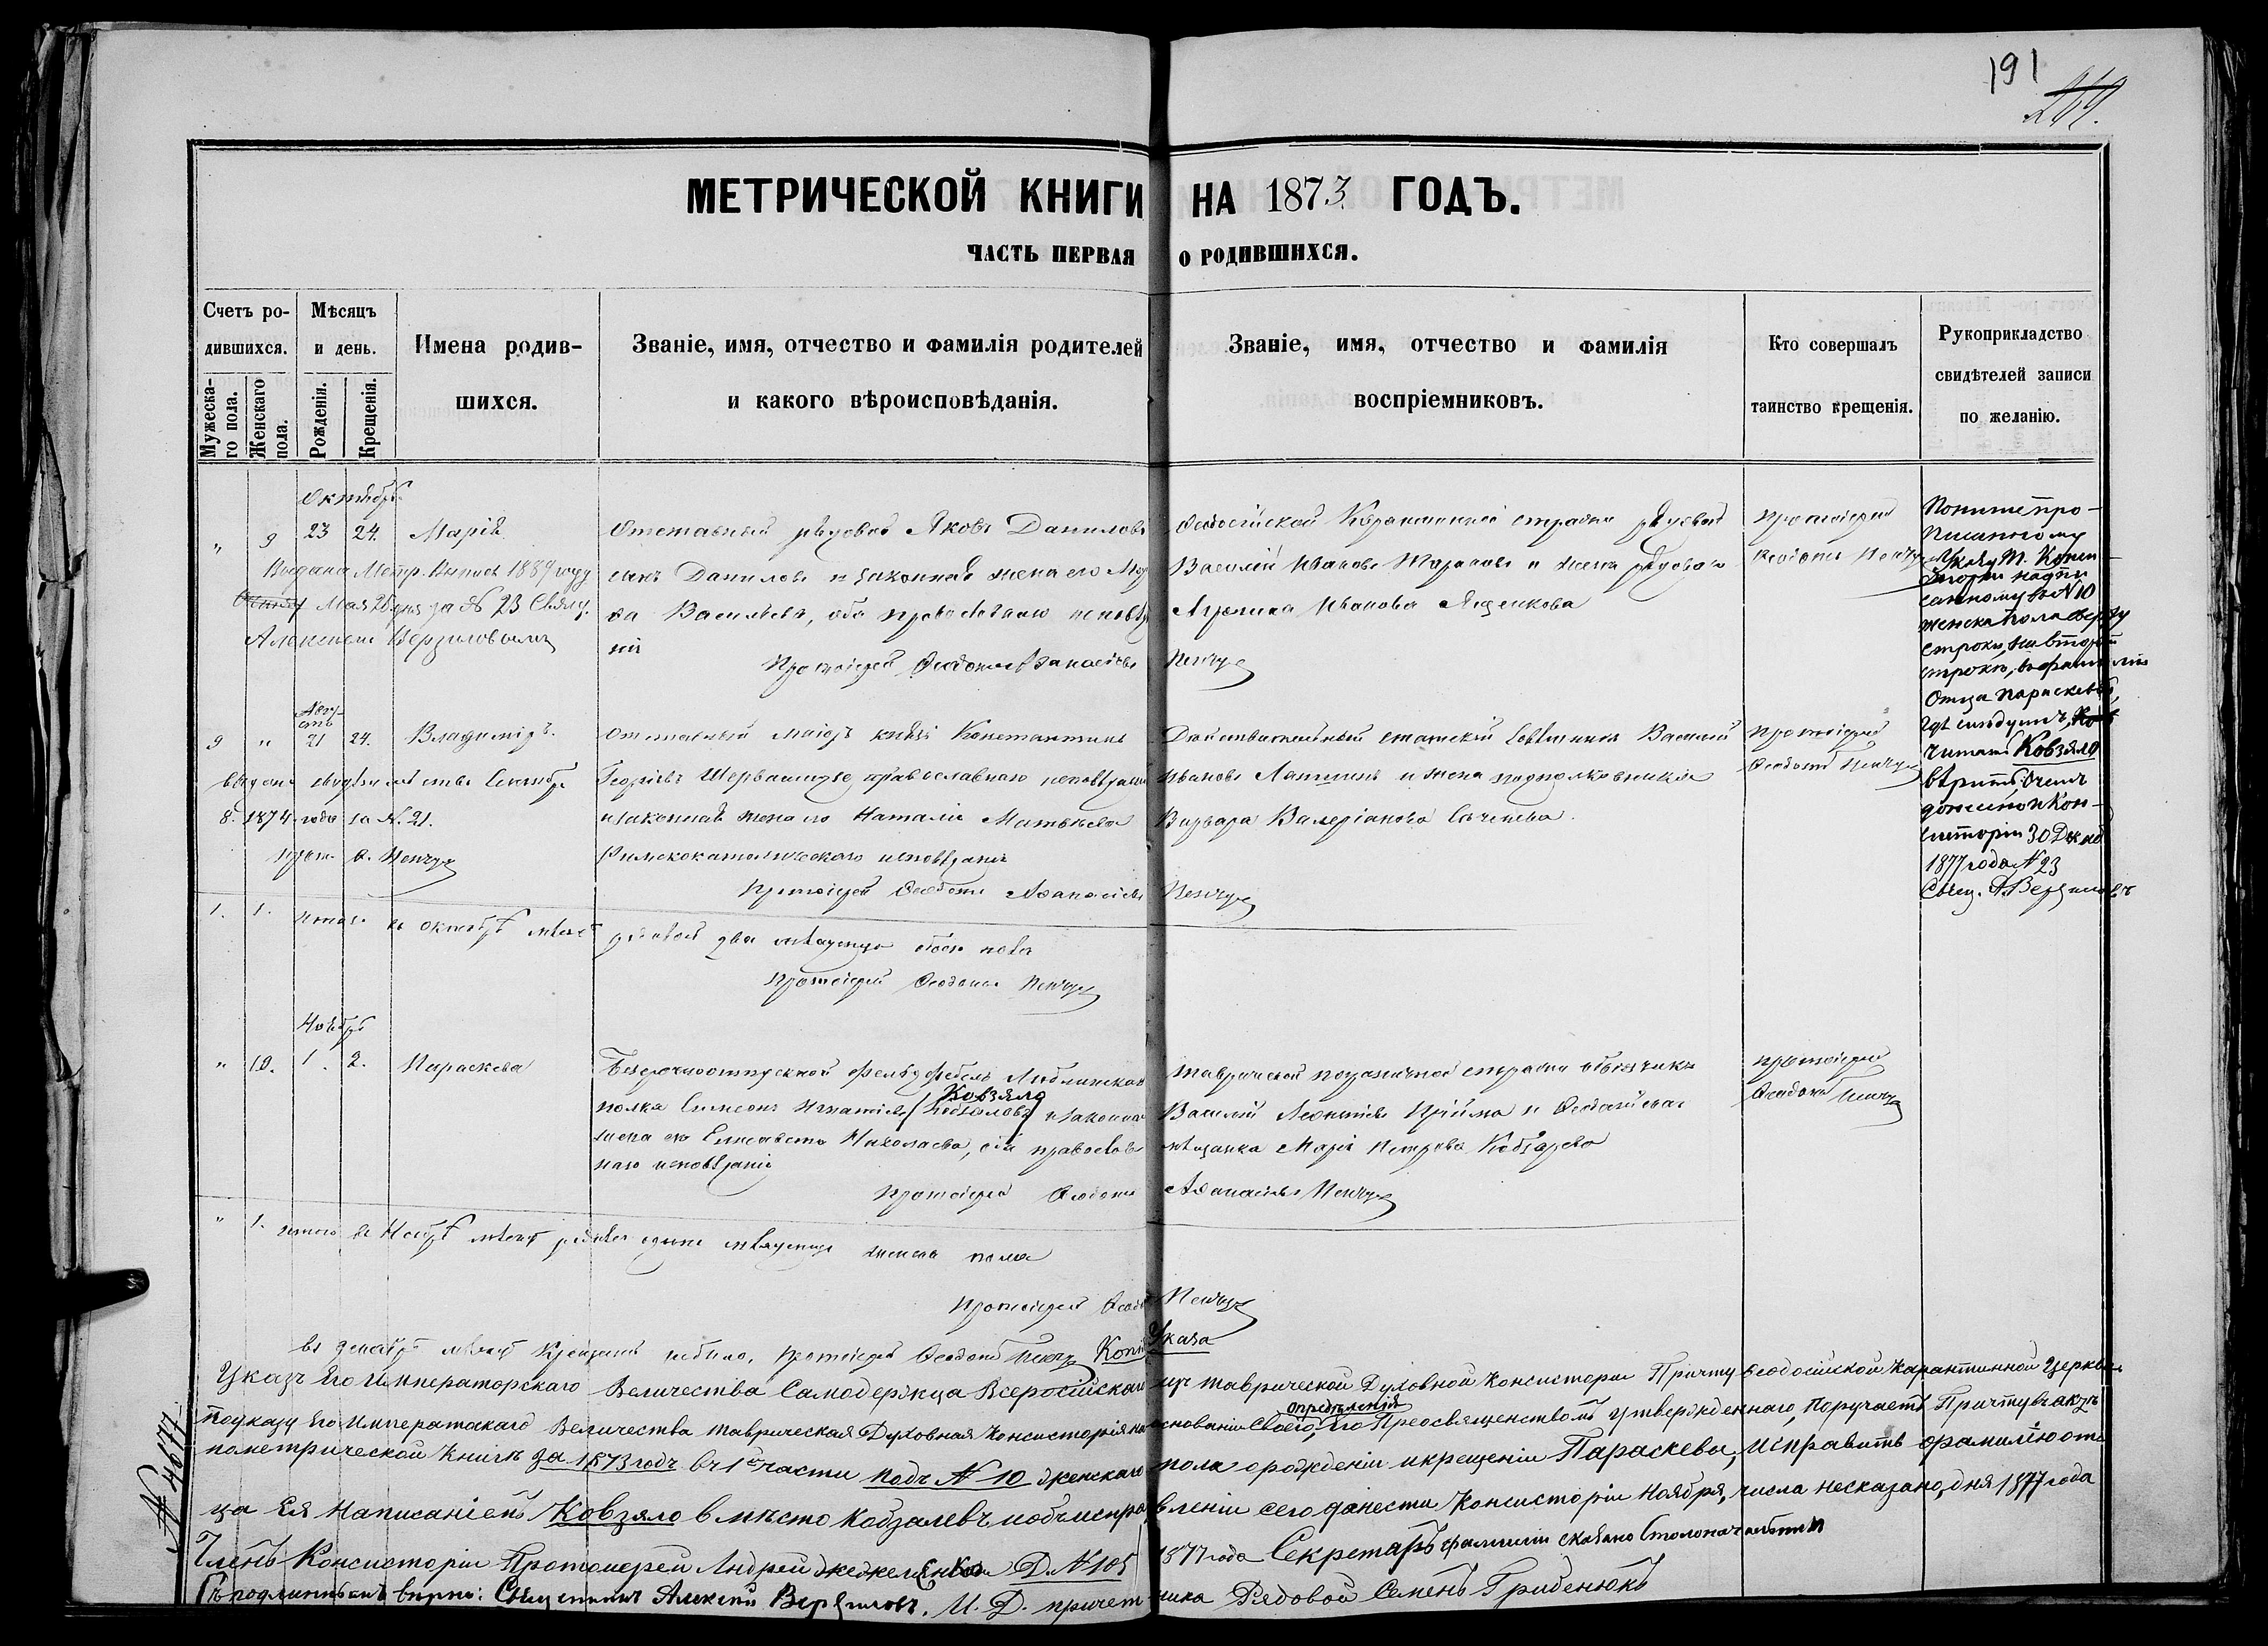 191
МЕТРИЧЕСКОЙ КНИГИ НА 1873 ГОДЪ.
ЧАСТЬ ПЕРВАЯ О РОДИВШИХСЯ.
Счетъ ро-
дившихся.
Мужеска-
го пола.
Женскаго
пола.
Мѣсяцъ
и день.
Рожденія.
Крещенія.
Имена родив-
шихся.
Званіе, имя, отчество и фамилія родителей
и какого вѣроисповѣданія.
Званіе, имя, отчество и фамилія
воспріемниковъ.
Кто совершалъ
таинство крещенія.
Рукоприкладство
свидѣтелей записи
по желанію.
Октябрь
" 9 23 24. Марія
Выдана Метр. Выпись 1889 году
Мая 25 дня за № 23 Свящ.
Алексѣемъ Верзиловымъ
Отставный рядовой Яковъ Даниловъ
сынъ Даниловъ и законная жена его
ва Васильева, оба православнаго исповѣда
нія
Протоіерей Ѳеодотъ Аѳанасіевъ Ненчук
Ѳеодосійской Карантинной стражи рядовой
Василій Ивановъ Тарановъ и жена рядоваго
Иванова Ященкова
Протоіерей
Ѳеодотъ Ненчук
По ниже про-
писанному
Указу Т. Конси
сторіи надпи
санному въ № 10
женска пола сверху
строки, на второй
строкѣ, въ фамиліи
Отца Параскевы,
гдѣ слѣдуетъ,
читать Ковзяло
вѣрить. О чемъ
донесено и Кон-
систоріи 30 Декаб
1877 года № 23
Свящ. А Верзиловъ
Авгу-
стъ
9 " 21 24. Владиміръ.
выдано свидѣтельство Сентября
8. 1874 года за №. 21.
Прот. Ѳ. Ненчук
Отставный маіоръ князь Константинъ
Георгіевъ Шервашидзе православнаго исповѣданія
и законная жена его Наталія Матвѣева
Римскокатолическаго исповѣданія
Протоіерей Ѳеодотъ Аѳанасіевъ Ненчук
Дѣйствительный статскій Совѣтникъ Василій
Ивановъ Лапшинъ и жена подполковника
Варвара Валеріанова Сычева.
Протоіерей
Ѳеодотъ Ненчук
1. 1. Итого въ октябрѣ мѣсяцѣ родилось два младенца обоего пола
Протоіерей Ѳеодотъ Ненчук
Ноябрь
" 10. 1. 2. Параскева
Безсрочноотпускной фельдфебель Люблинскаго
Ковзяло
полка Симеонъ Игнатіевъ Кобзалевъ и законная
жена его Елисавета Николаева, оба православ
наго исповѣданія
Протоіерей Ѳеодотъ Аѳанасіевъ Ненчук
Таврической пограничной стражи объѣзчикъ
Василій Леонтіевъ Прійма и Ѳеодосійская
мѣщанка Марія Петрова Кобзарева
Протоіерей
Ѳеодотъ Ненчук
" 1. Итого въ Ноябрѣ мѣсяцѣ родился одинъ младенецъ женска пола
Протоіерей Ѳеодотъ Ненчук
Въ декабрѣ мѣсяцѣ крещеній небыло. Протоіерей Ѳеодотъ Ненчук Копія Указа
Указъ Его Императорскаго Величества Самодержца Всеросійскаго изъ Таврической Духовной Консисторіи Причту Ѳеодосійской Карантинной Церкви
опредѣленія
По указу Его Императскаго Величества Таврическая Духовная Консисторія на основаніи Своего, Его Преосвященствомъ утвержденнаго, Поручаетъ Причту въ актѣ
по метрической Книгѣ за 1873 годъ въ 1й части подъ № 10 женскаго пола о рожденіи и крещеніи Параскевы, исправить фамилію от
ца Ея Написаніемъ Ковзяло вмѣсто Кобзалевъ и объ исправленіи сего донести Консисторіи Ноября, числа несказано, дня 1877 года
Членъ Консисторіи Протоиерей Андрей Жежеленко Д. № 105 1877 года Секретарь фамиліи сказано Столоначальникъ
Съ подлиннымъ вѣрно: Священникъ Алексѣй Верзиловъ. И. Д. причетника Рядовой Семенъ Гриденюкъ
№ 4677